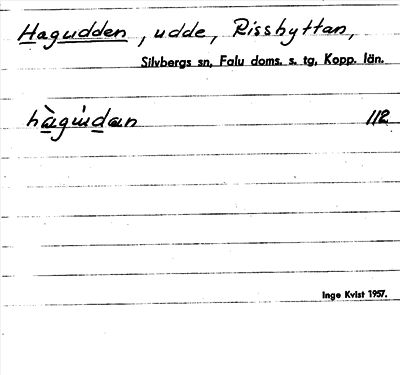 Hagudden, udde, Risshyttan,
Silvbergs sn, Falu doms. s. tg, Kopp. län.
hàgùdan 112
Inge Kvist 1957.